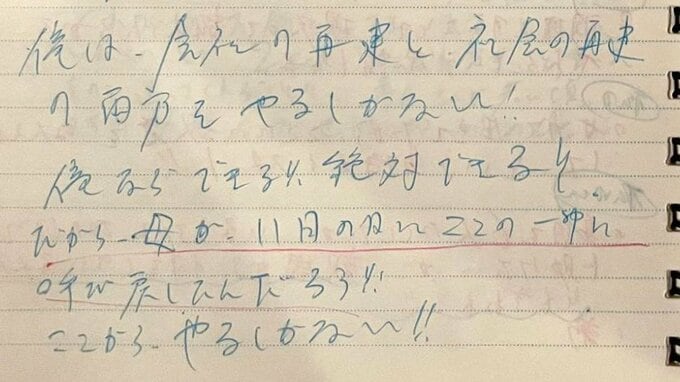 俺は、会社の再建と、社会の再建
の両方をやるしかない!!
俺ならできる!! 絶対できる!!
だから、母が、11月の日にココの一沖に
呼び戻したんだろう!!
ここから、やるしかない!!